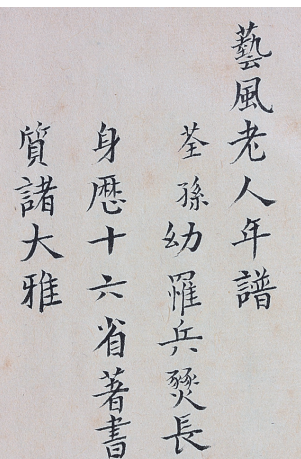 藝風老人年譜
荃孫幼罹兵燹長
身歷十六省著書
質諸大雅